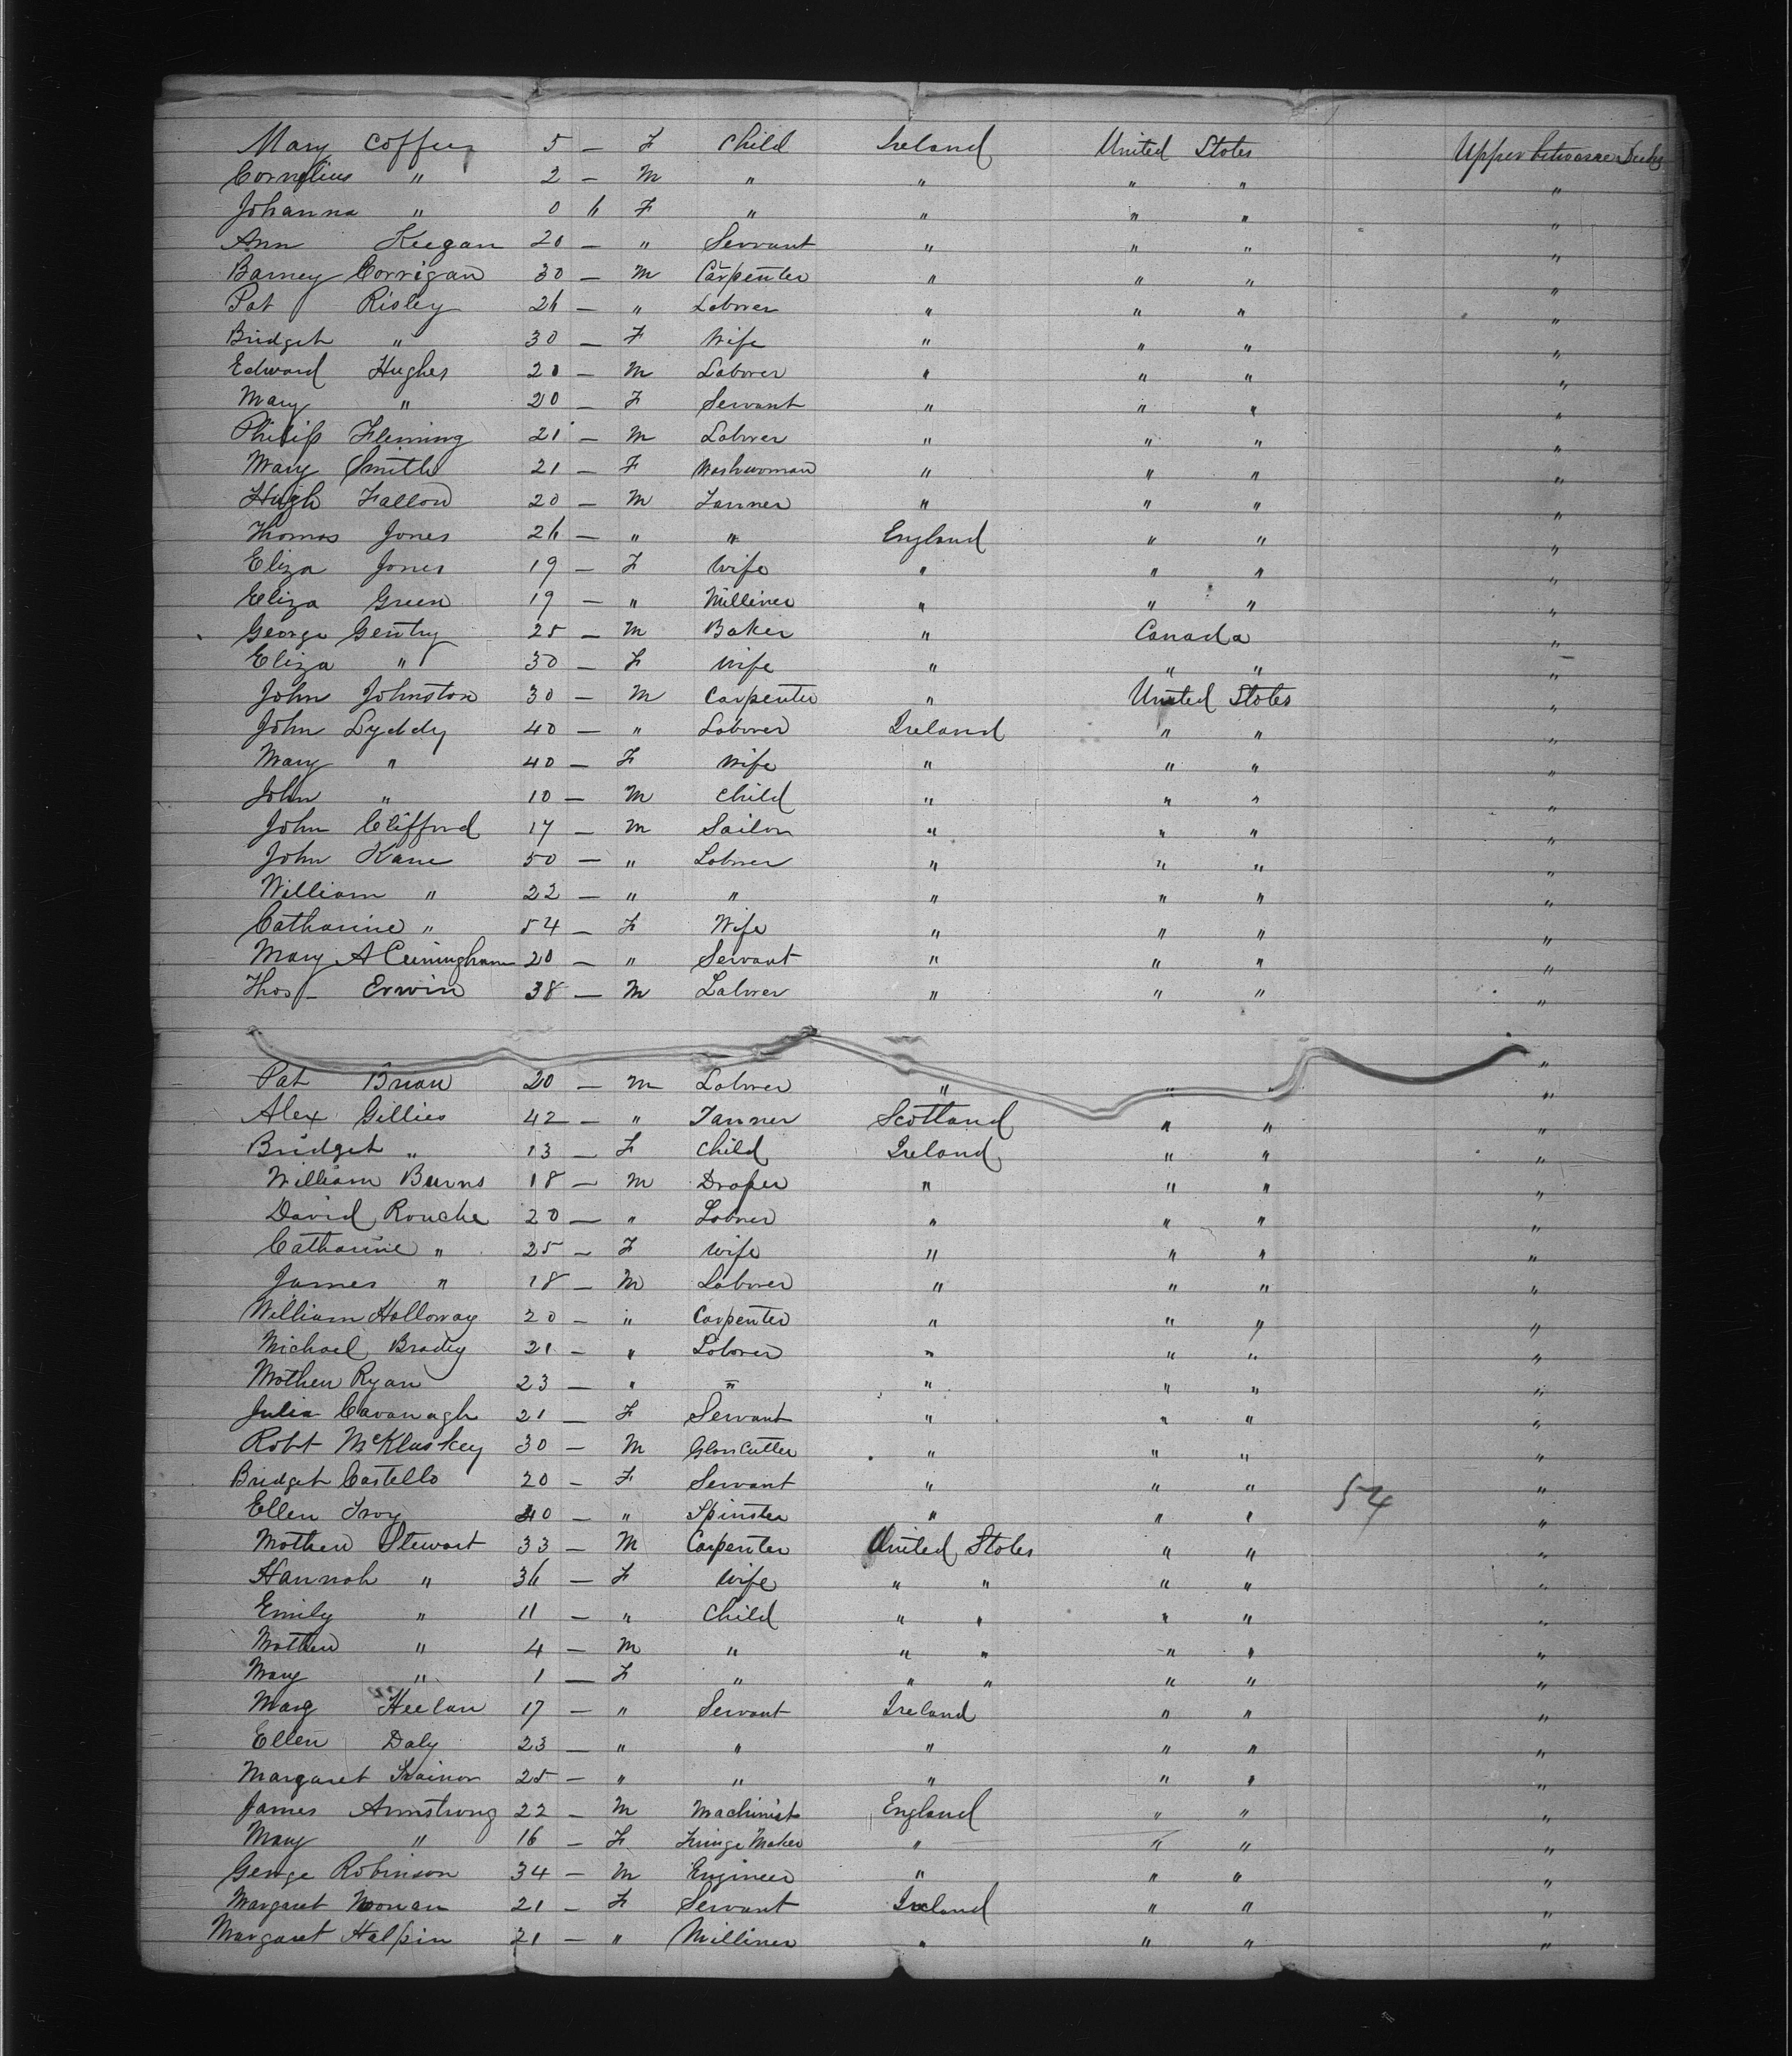 Mary Coffey 5 — F Child Ireland United States Upper between Decks
Cornelius " 2 — M " " " " "
Johanna " 0 6 F " " " " "
Ann Keegan 20 — " Servant " " " "
Barney Corrigan 30 — M Carpenter " " " "
Pat Risley 26 — " Laborer " " " "
Bridget " 30 — F Wife " " " "
Edward Hughes 20 — M Laborer " " " "
Mary " 20 — F Servant " " " "
Philip Fleming 21 — M Laborer " " " "
Mary Smith 21 — F Washwoman " " " "
Hugh Fallon 20 — M Tanner " " " "
Thomas Jones 26 — " " England " " "
Eliza Jones 19 — F Wife " " " "
Eliza Green 19 — " Milliner " " " "
George Gentry 25 — M Baker " Canada "
Eliza " 30 — F Wife " " " "
John Johnston 30 — M Carpenter " United States "
John Lyddy 40 — " Laborer Ireland " " "
Mary " 40 — F Wife " " " "
John " 10 — M Child " " " "
John Clifford 17 — M Sailor " " " "
John Kane 50 — " Laborer " " " "
William " 22 — " " " " " "
Catharine " 54 — F Wife " " " "
Mary A Cuningham 20 — " Servant " " " "
Thos — Erwin 38 — M Laborer " " " "
"
Pat Brian 20 — M Laborer " " " "
Alex Gillies 42 — " Tanner Scotland " " "
Bridget " 13 — F Child Ireland " " "
William Burns 18 — M Draper " " " "
David Rouche 20 — " Laborer " " " "
Catharine " 25 — F Wife " " " "
James " 18 — M Laborer " " " "
William Holloway 20 — " Carpenter " " " "
Michael Brady 21 — " Laborer " " " "
Mathew Ryan 23 — " " " " " "
Julia Cavanagh 21 — F Servant " " " "
Robt McKluskey 30 — M Glass Cutter " " " "
Bridget Costello 20 — F Servant " " " "
54
Ellen Troy 40 — " Spinster " " " "
Mathew Stewart 33 — M Carpenter United States " " "
Hannah " 36 — F Wife " " " " "
Emily " 11 — " Child " " " " "
Mathew " 4 — M " " " " " "
Mary " 1 — F " " " " " "
Mary Heelan 17 — " Servant Ireland " " "
Ellen Daly 23 — " " " " " "
Margaret Trainor 25 — " " " " " "
James Armstrong 22 — M Machinist England " " "
Mary " 16 — F Fringe Maker " " " "
George Robinson 34 — M Engineer " " " "
Margaret Noonan 21 — F Servant Ireland " " "
Margaret Halpin 21 — " Milliner " " " "